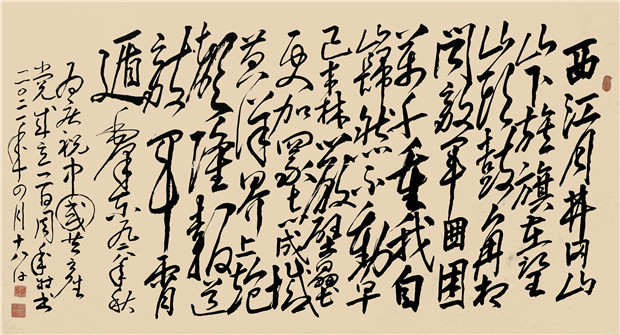 西江月井冈山
山下旌旗在望
山頭鼓角相
闻敵軍围困
萬千重我自
巋然不動早
已森嚴壁壘
更加眾志成城
黄洋界上炮
聲隆報道
敵軍宵
遁 毛泽东一九二八年秋
为庆祝中國共產
党成立一百周年 书
二〇二一年四月十八日